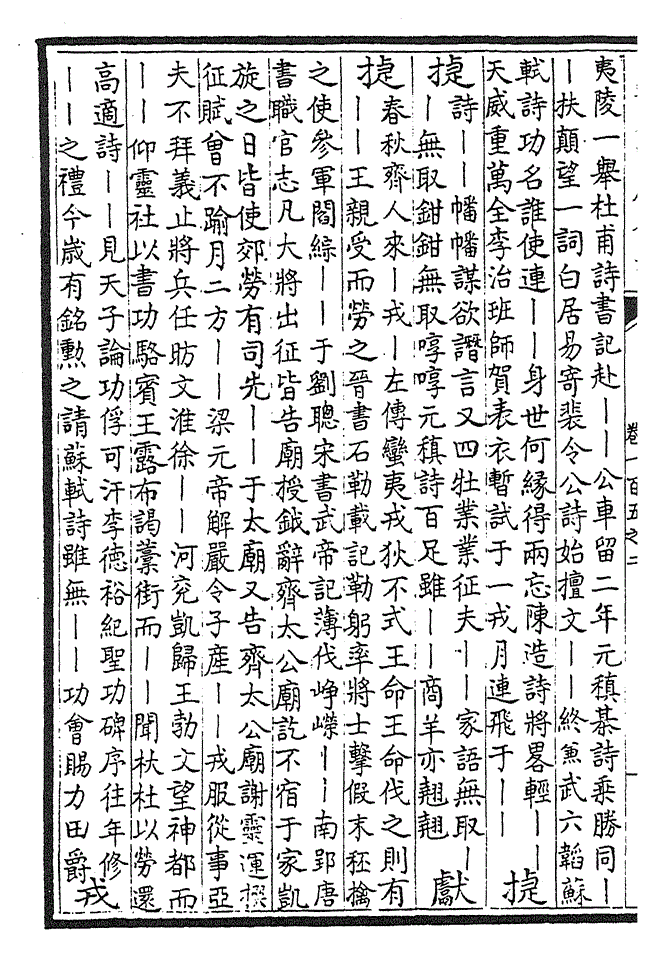 卷一百五之二
夷陵一舉杜甫詩書記赴――公車留二年元稹綦詩乘勝同―
―扶顛望一詞白居易寄裴令公詩始擅文――終兼武六韜蘇
軾詩功名誰使連――身世何緣得兩忘陳造詩將畧輕――
天威重萬全李治班師賀表衣暫試于一戎月連飛于――
捷
捷
詩――幡幡謀欲譖言又四牡業業征夫――家語無取―
―無取鉗鉗無取啍啍元稹詩百足雖――商羊亦翹翹
獻
捷
春秋齊人來―戎―左傳蠻夷戎狄不式王命王命伐之則有
――王親受而勞之晉書石勒載記勒躬率將士擊假末柸擒
之使參軍閻綜――于劉聰宋書武帝記薄伐崢嶸――南郢唐
書職官志凡大將出征皆告廟授鉞辭齊太公廟訖不宿于家凱
旋之日皆使郊勞有司先――于太廟又告齊太公廟謝靈運撰
征賦曾不踰月二方――梁元帝解嚴令子產――戎服從事亞
夫不拜義止將兵任昉文淮徐――河兖凱歸王勃文望神都而
――仰靈社以書功駱賓王露布謁藁街而――聞杕杜以勞還
高適詩――見天子論功俘可汗李德裕紀聖功碑序往年修
――之禮今歲有銘勲之請蘇軾詩雖無――功會賜力田爵
戎